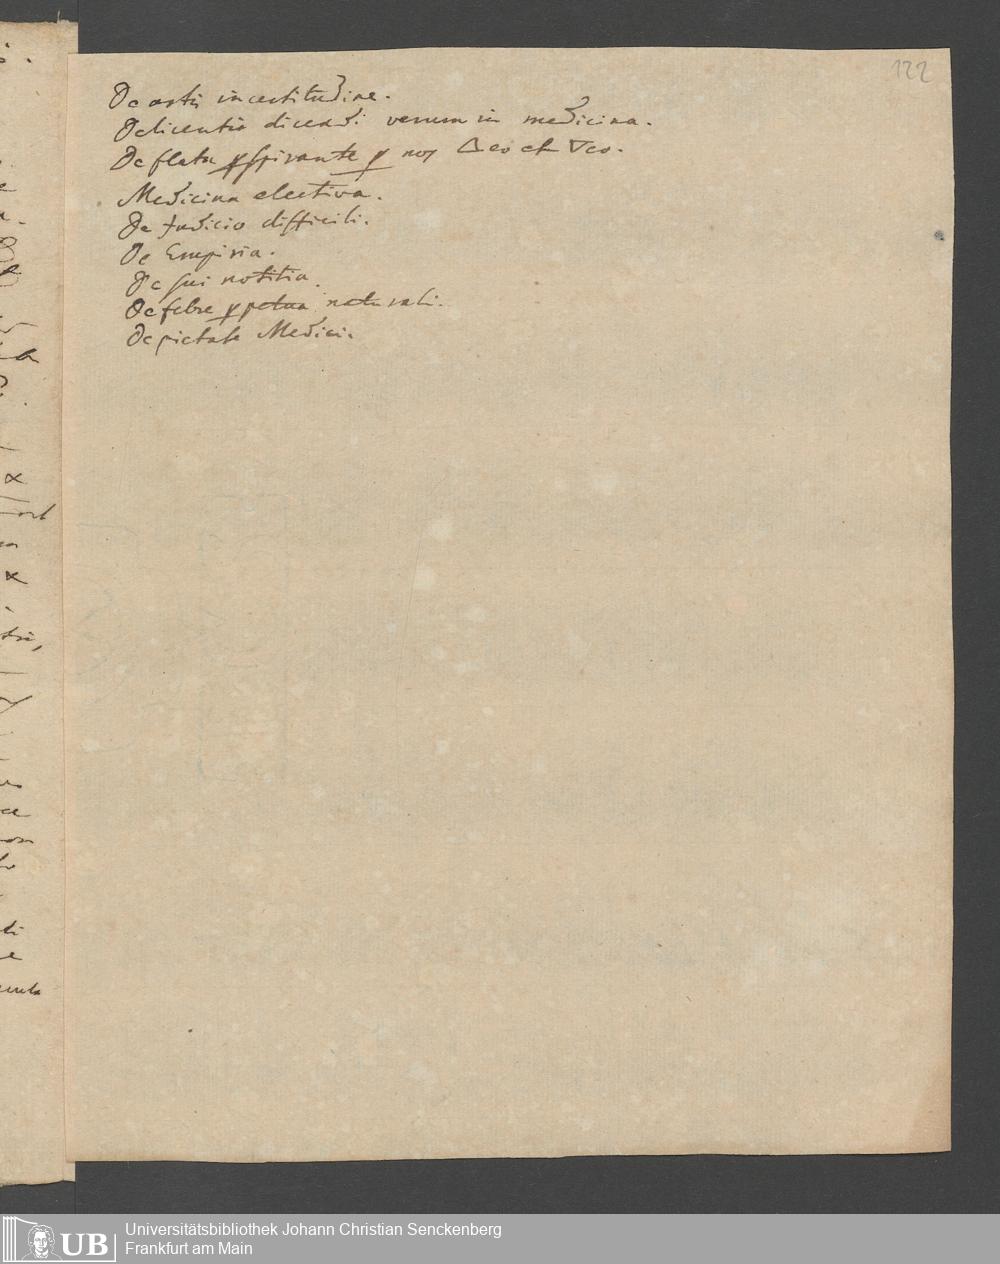 122
De artis incertitudine.
De licentia dicendi verum in medicina.
De flatu perspirante per nos △eo et ▽eo.
Medicina electiva.
De Judicio difficili.
De Empiria.
De sui notitia.
De febre perpetua naturali.
De pietate Medici.
Universitätsbibliothek Johann Christian Senckenberg
UB Frankfurt am Main